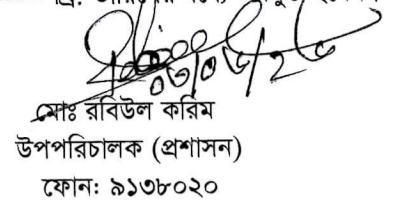 ০৩/০৬/২০
মোঃ রবিউল করিম
উপপরিচালক (প্রশাসন)
ফোন: ৯১৩৮০২০